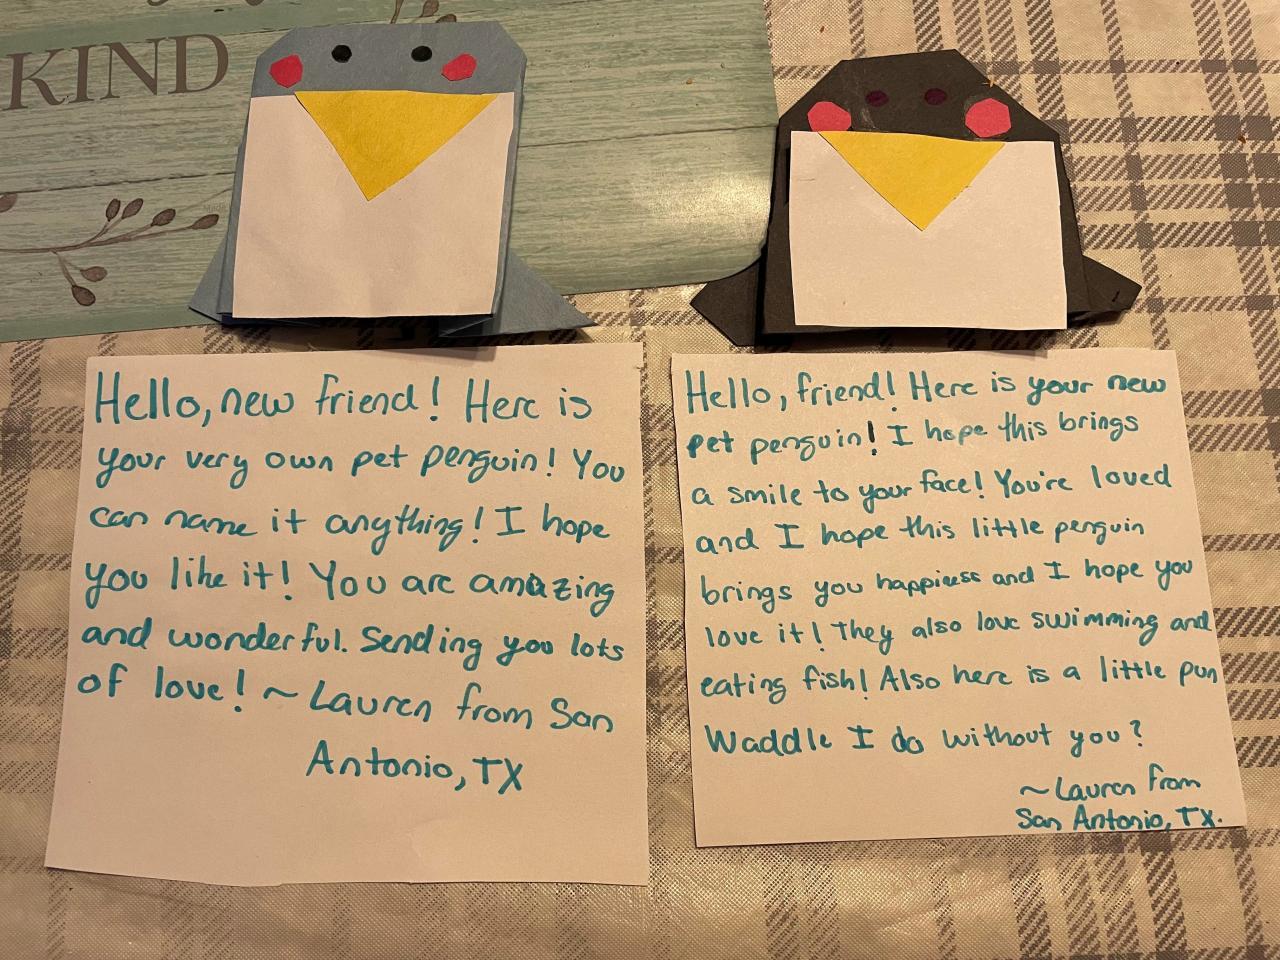 KIND
Hello, new friend! Here is
your very own pet penguin! You
can name it anything! I hope
you like it! You are amazing
and wonderful. Sending you lots
of love! ~ Lauren from San
Antonio, TX
Hello, friend! Here is your new
pet penguin! I hope this brings
a smile to your face! You're loved
and I hope this little penguin
brings you happiness and I hope you
love it! They also love swimming and
eating fish! Also here is a little pun
Waddle I do without you?
~Lauren from
San Antonio, TX.